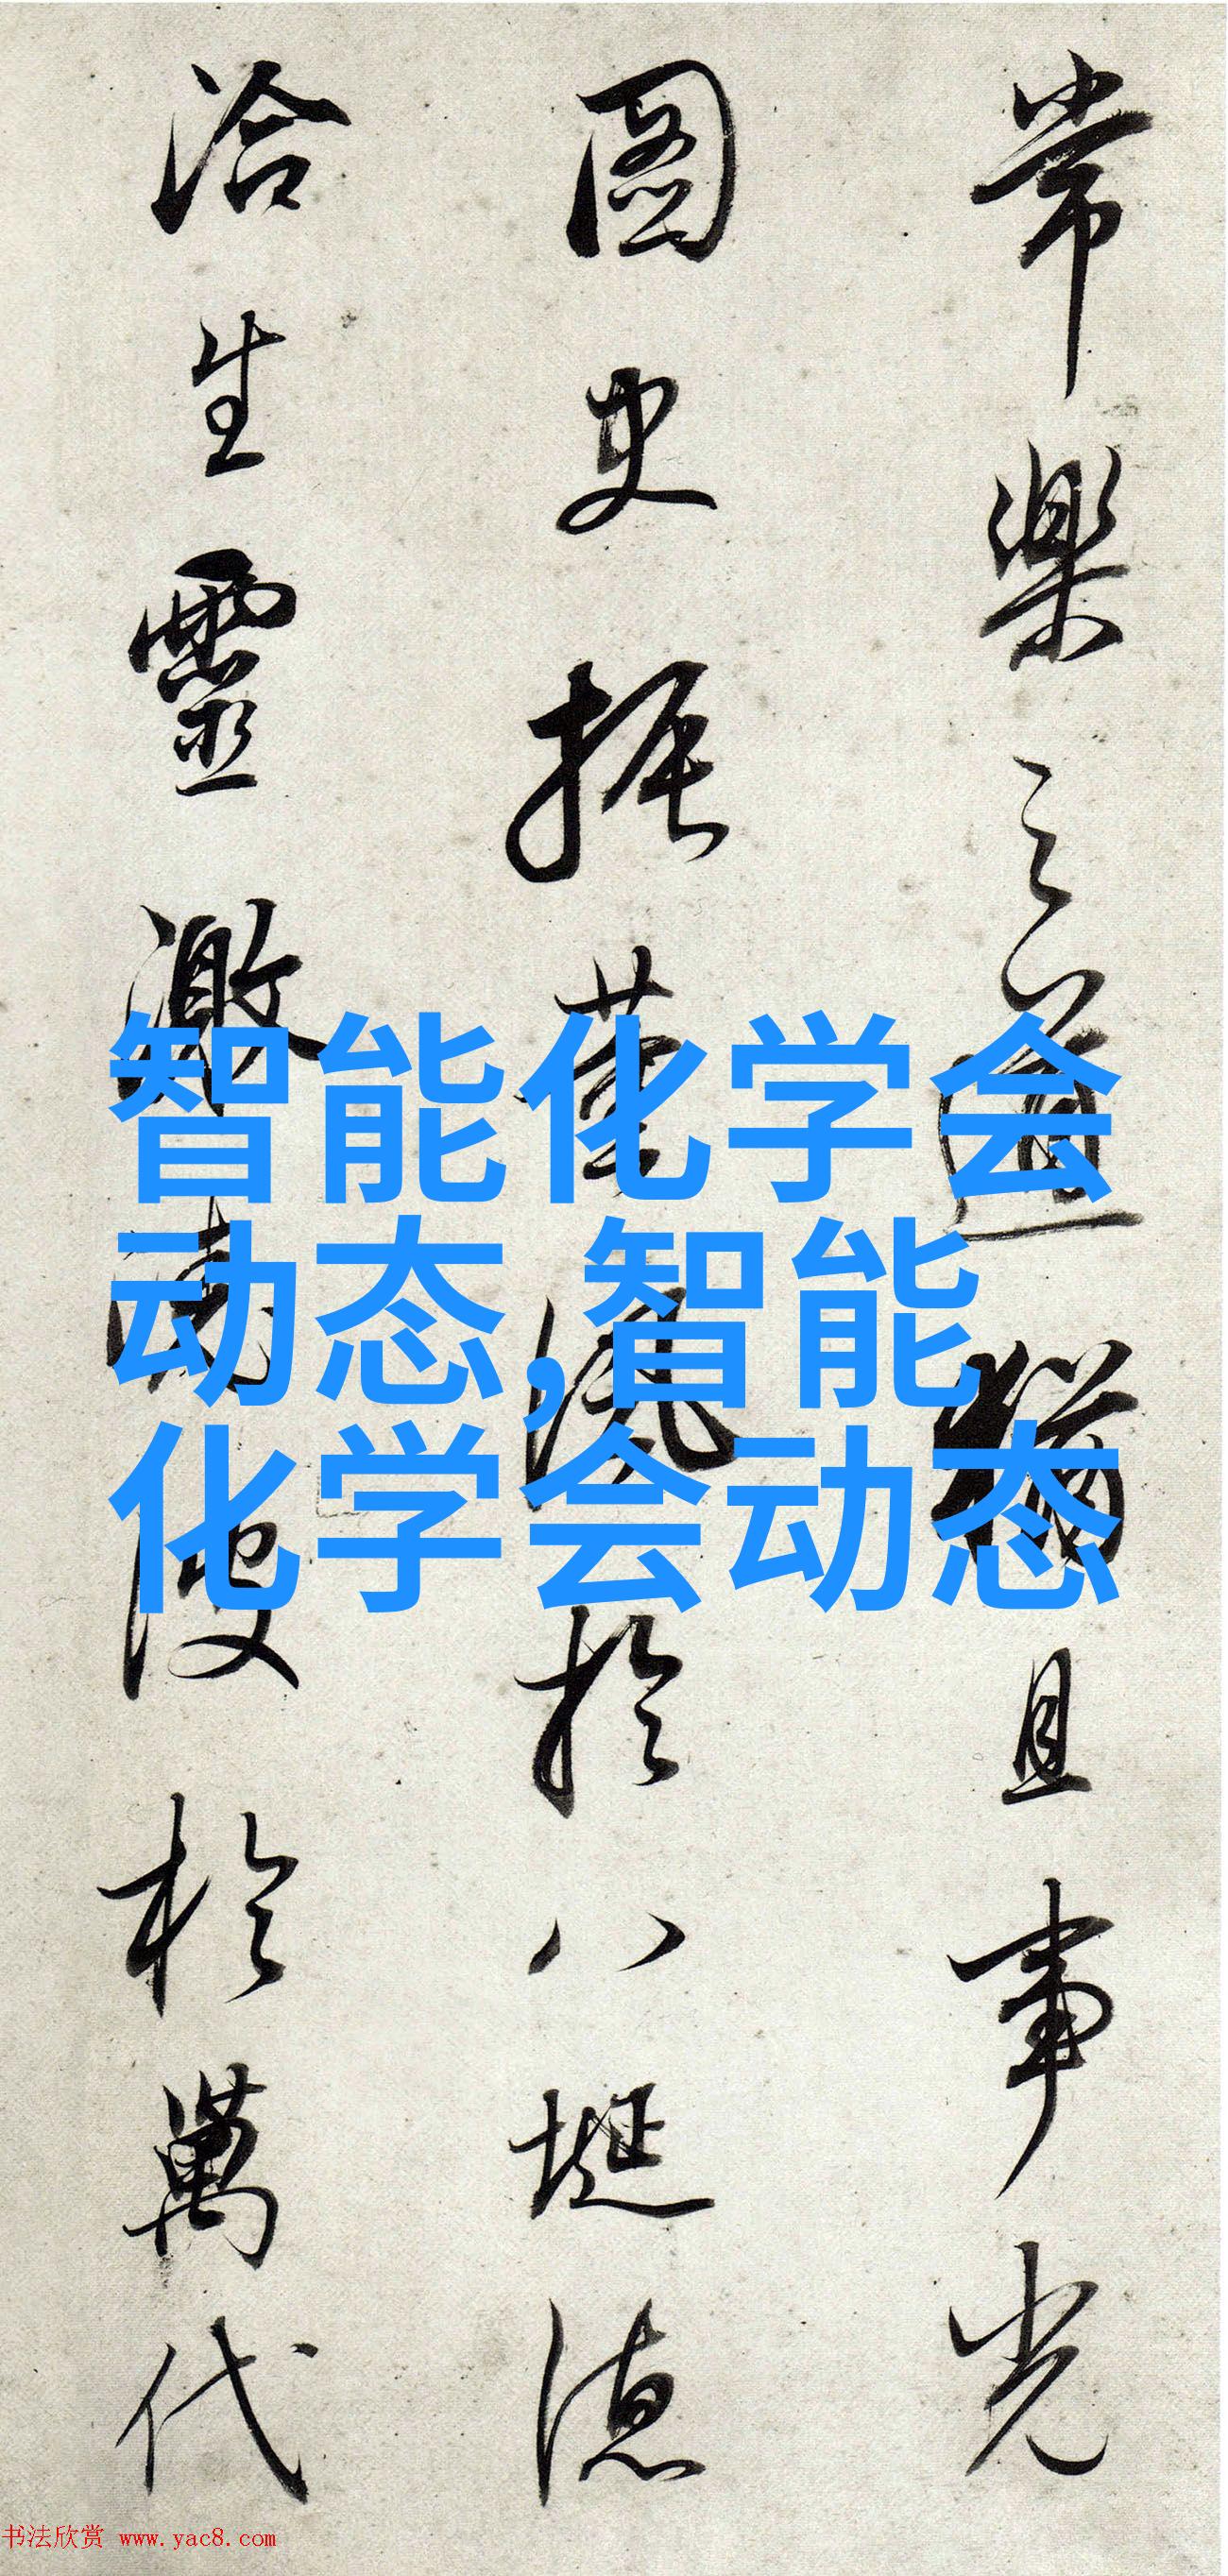 常樂之道猶且事光
圖史振薰風於八埏德
洽生靈激波於萬代
智能化学会
动态,智能
化学会动态
书法欣赏 www.yac8.com